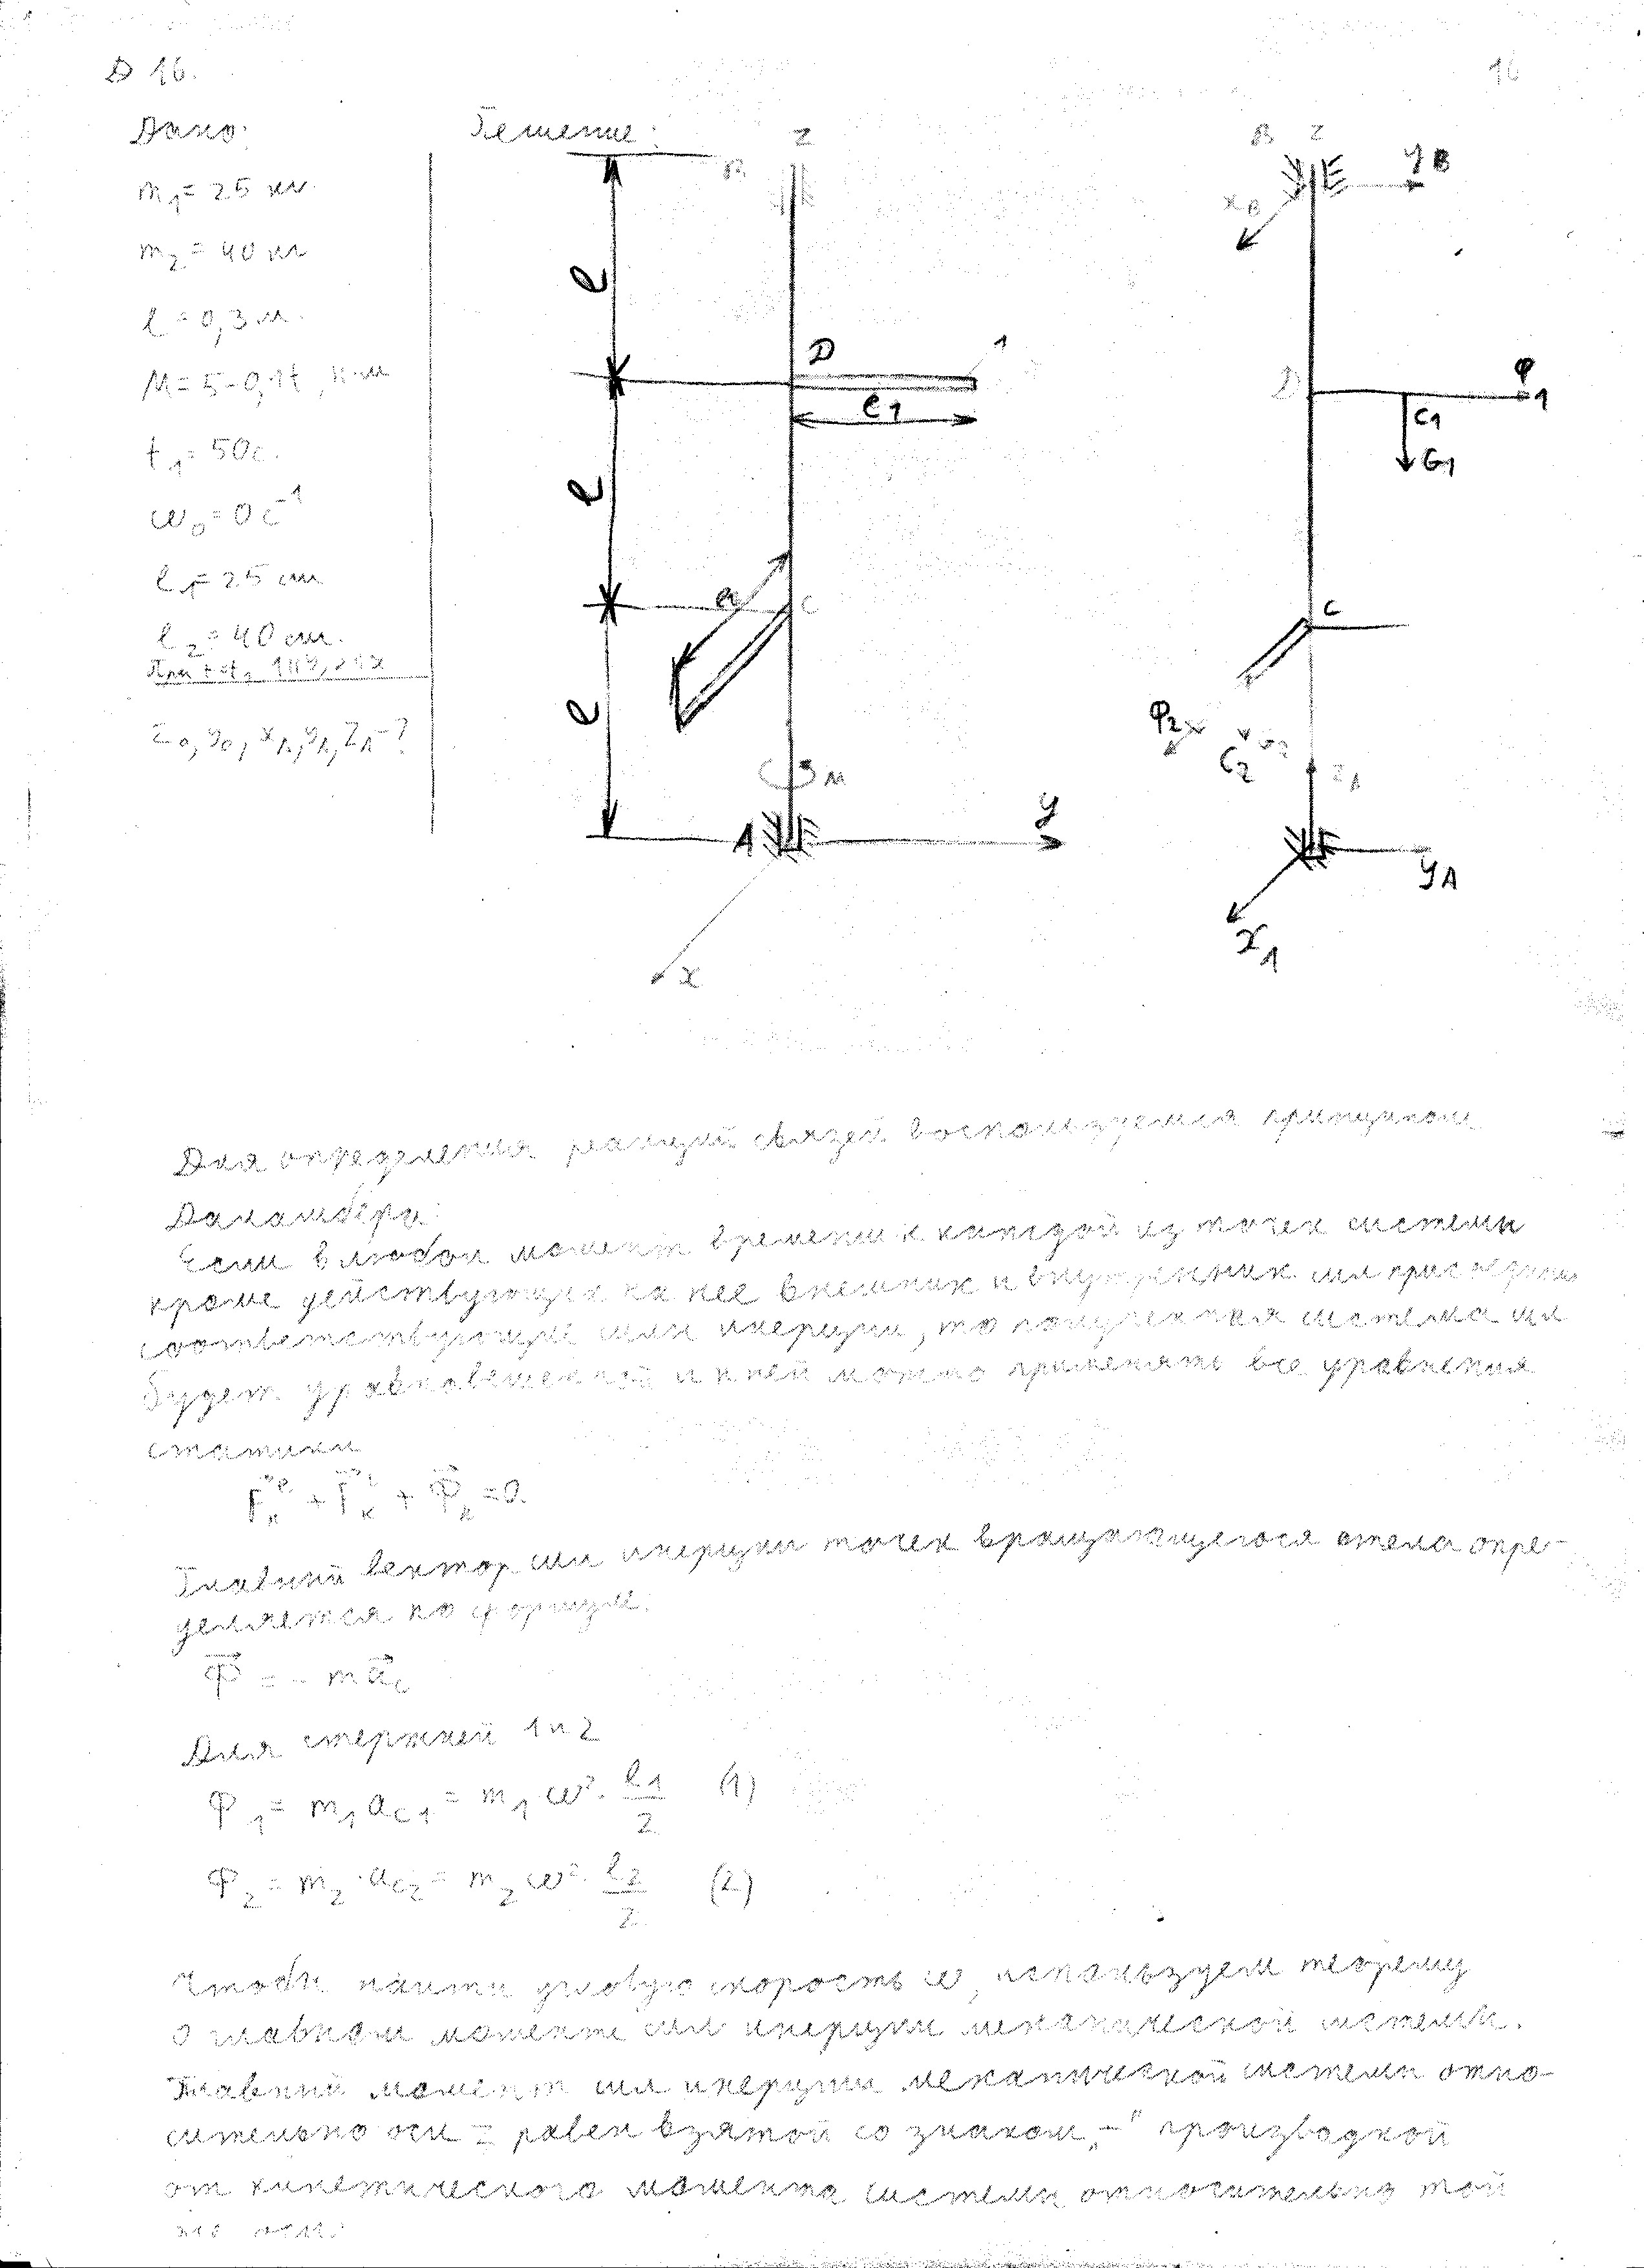 D 16.
16
Дано:
Решение:
m₁ = 25 кг.
m₂ = 40 кг
l = 0,3 м.
M = 5 - 0,1t, н·м
t₁ = 50с.
ω₀ = 0 c⁻¹
l₁ = 25 см
l₂ = 40 см.
При t = t₁
B
Z
l
D
1
l₁
l
a
C
l
M
A
y
x
B
Z
yB
xB
D
Φ1
C1
G1
C
Φ2x
G2
C2
ZA
yA
x1
Для определения реакций связей воспользуемся принципом
Даламбера:
Если в любой момент времени к каждой из точек системы
кроме действующих на нее внешних и внутренних сил присоединить
соответствующие силы инерции, то полученная система сил
будет уравновешенной и к ней можно применять все уравнения
статики
F̅ₖᵉ + F̅ₖⁱ + Φ̅ₖ = 0.
Главный вектор сил инерции точек вращающегося тела опре-
деляется по формуле:
Φ̅ = - m a̅c
Для стержней 1 и 2
Φ₁ = m₁ aC₁ = m₁ ω² · l₁/2 (1)
Φ₂ = m₂ · aC₂ = m₂ ω² · l₂/2 (2)
Чтобы найти угловую скорость ω, используем теорему
о главном моменте сил инерции механической системы.
Главный момент сил инерции механической системы отно-
сительно оси z равен взятой со знаком „-" производной
от кинетического момента системы относительно той
же оси: